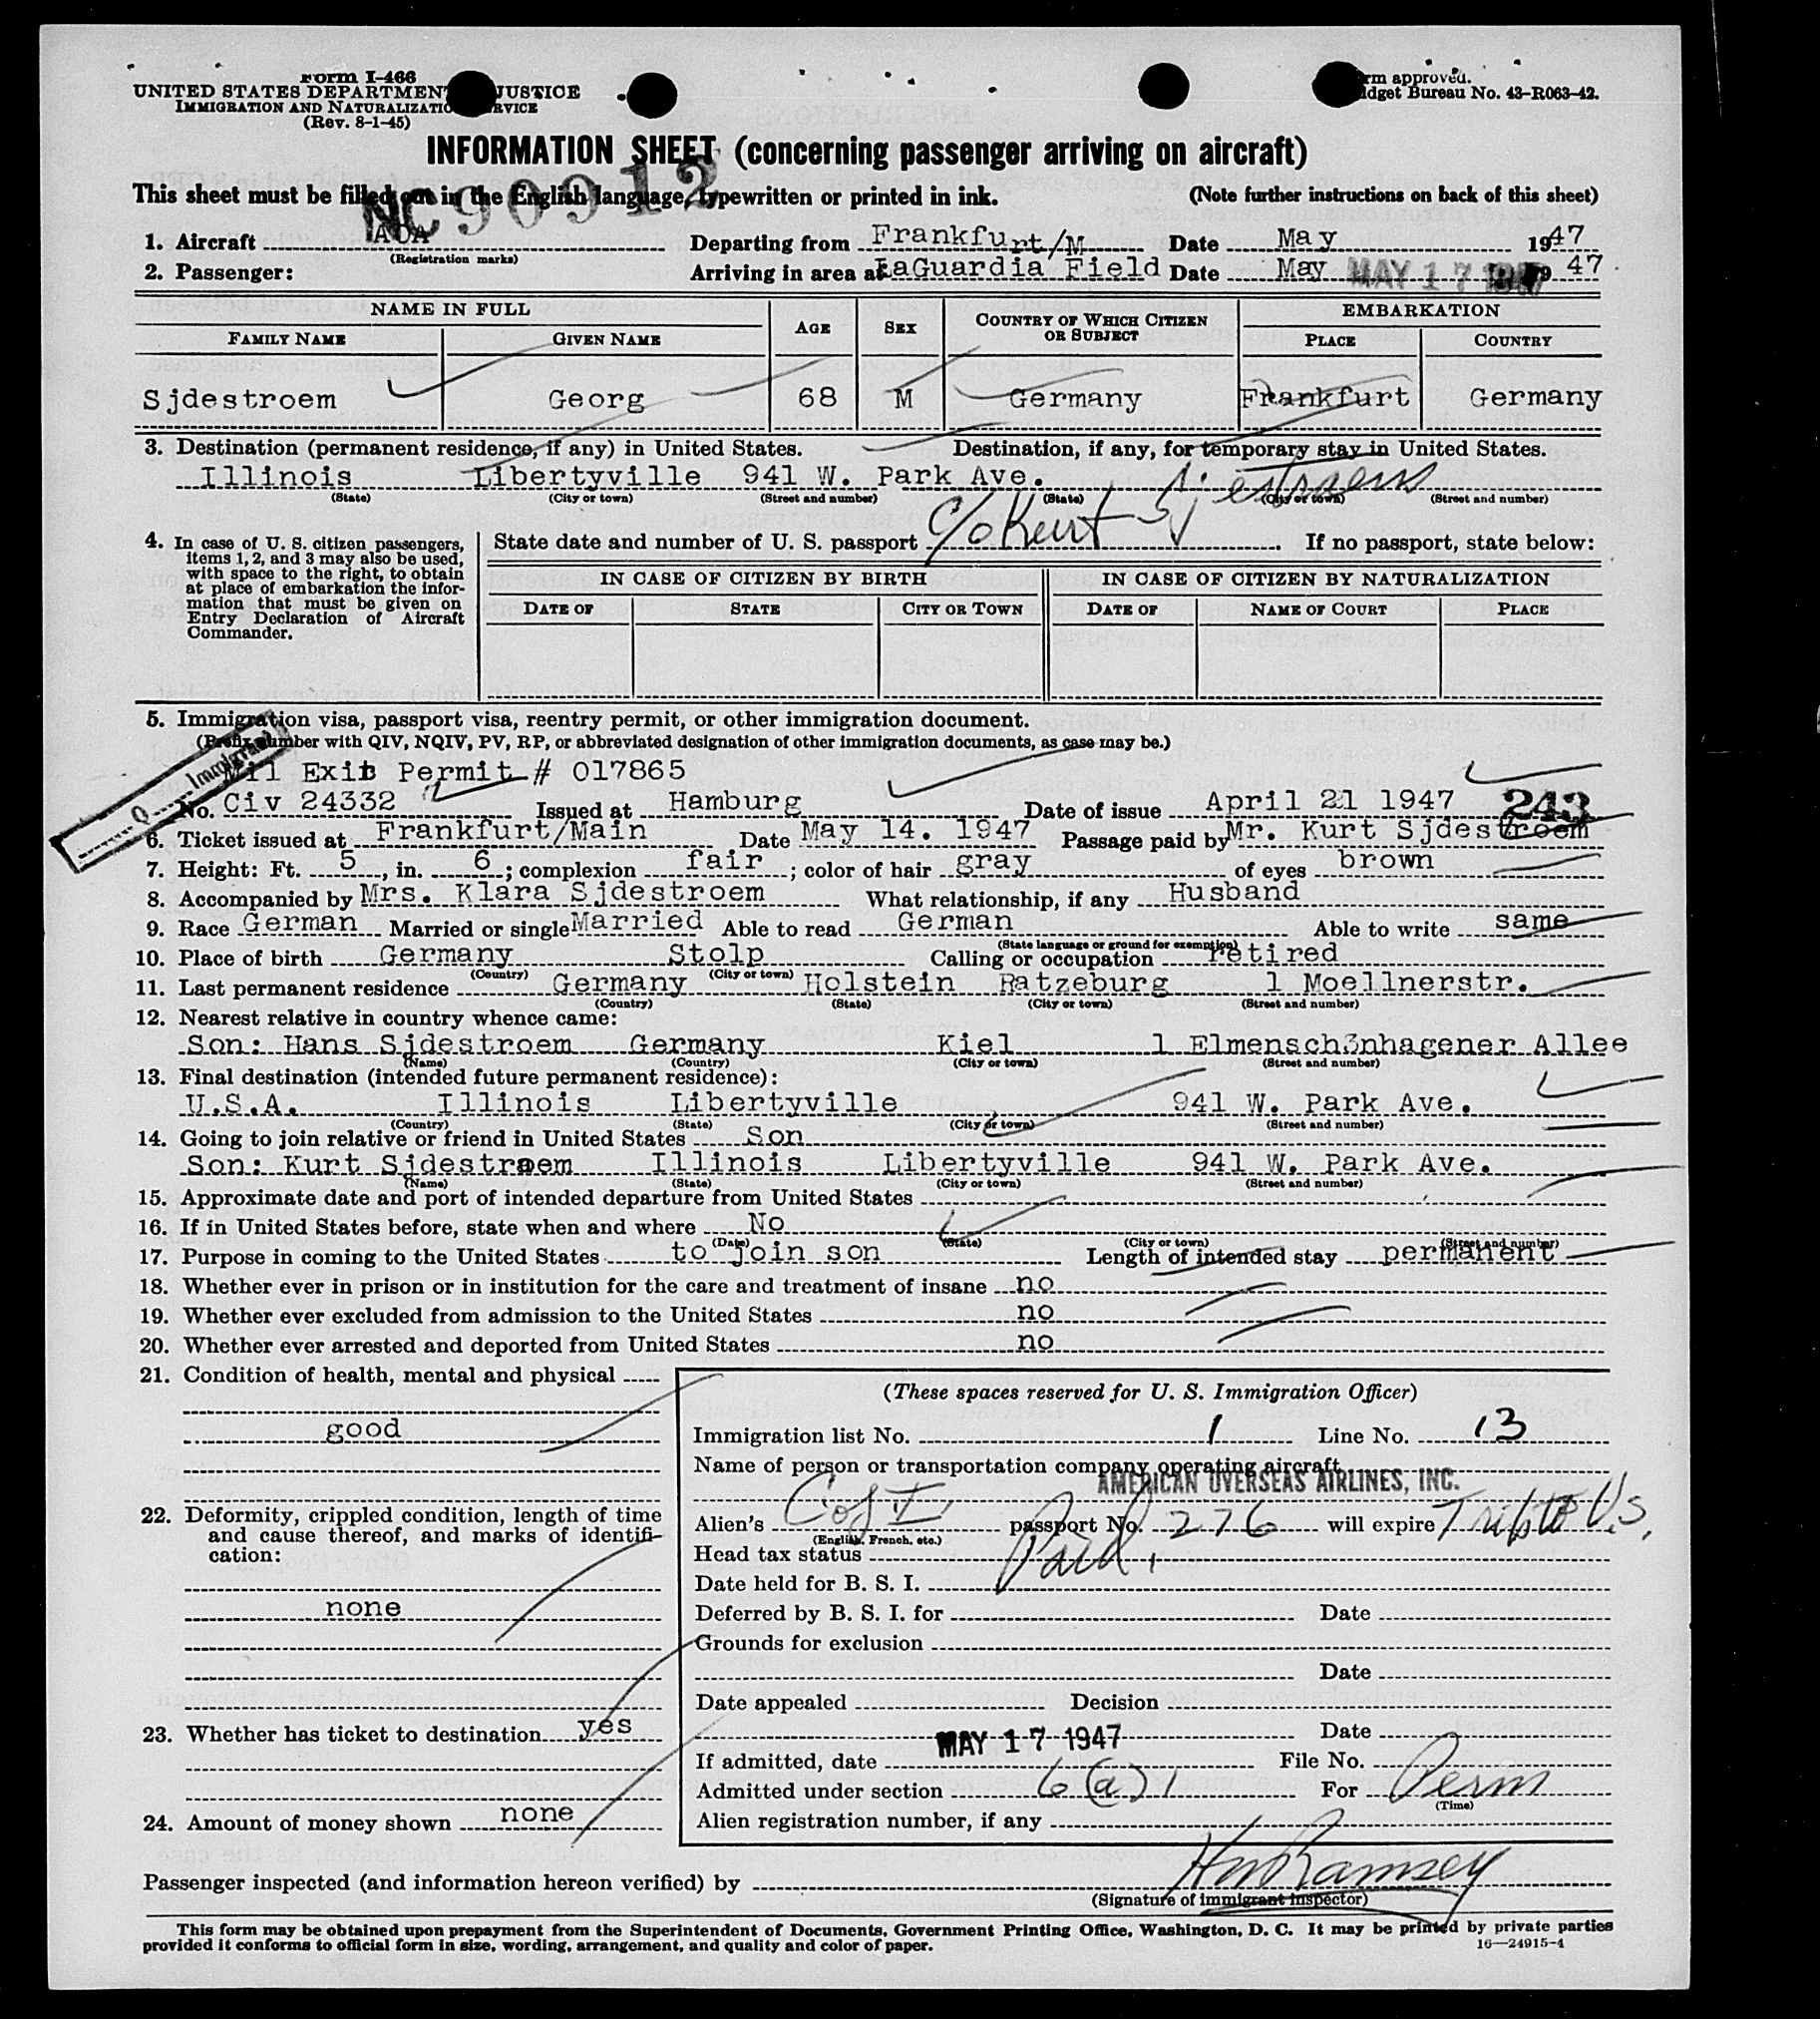 Form I-466
UNITED STATES DEPARTMENT JUSTICE
IMMIGRATION AND NATURALIZATIO RVICE
(Rev. 8-1-45)
rm approved.
dget Bureau No. 43-R063-42.
INFORMATION SHEET (concerning passenger arriving on aircraft)
This sheet must be filled out in the English language, typewritten or printed in ink. (Note further instructions on back of this sheet)
NC90912
1. Aircraft AOA Departing from Frankfurt/M Date May 1947
(Registration marks)
2. Passenger: Arriving in area at LaGuardia Field Date May MAY 17 1947 47
NAME IN FULL AGE SEX COUNTRY OF WHICH CITIZEN OR SUBJECT EMBARKATION
FAMILY NAME GIVEN NAME PLACE COUNTRY
Sjdestroem Georg 68 M Germany Frankfurt Germany
3. Destination (permanent residence, if any) in United States. Destination, if any, for temporary stay in United States.
Illinois Libertyville 941 W. Park Ave.
(State) (City or town) (Street and number) (State) (City or town) (Street and number)
c/o Kurt Sjestroem
4. In case of U. S. citizen passengers, items 1, 2, and 3 may also be used, with space to the right, to obtain at place of embarkation the information that must be given on Entry Declaration of Aircraft Commander.
State date and number of U. S. passport If no passport, state below:
IN CASE OF CITIZEN BY BIRTH IN CASE OF CITIZEN BY NATURALIZATION
DATE OF STATE CITY OR TOWN DATE OF NAME OF COURT PLACE
5. Immigration visa, passport visa, reentry permit, or other immigration document.
(Prefix number with QIV, NQIV, PV, RP, or abbreviated designation of other immigration documents, as case may be.)
Q Immigrant
Mil Exit Permit # 017865
No. Civ 24332 Issued at Hamburg Date of issue April 21 1947 243
6. Ticket issued at Frankfurt/Main Date May 14. 1947 Passage paid by Mr. Kurt Sjdestroem
7. Height: Ft. 5, in. 6; complexion fair; color of hair gray of eyes brown
8. Accompanied by Mrs. Klara Sjdestroem What relationship, if any Husband
9. Race German Married or single Married Able to read German Able to write same
(State language or ground for exemption)
10. Place of birth Germany Stolp Calling or occupation retired
(Country) (City or town)
11. Last permanent residence Germany Holstein Ratzeburg 1 Moellnerstr.
(Country) (State) (City or town) (Street and number)
12. Nearest relative in country whence came:
Son: Hans Sjdestroem Germany Kiel 1 Elmenschönhagener Allee
(Name) (Country) (City or town) (Street and number)
13. Final destination (intended future permanent residence):
U.S.A. Illinois Libertyville 941 W. Park Ave.
(Country) (State) (City or town) (Street and number)
14. Going to join relative or friend in United States Son
Son: Kurt Sjdestroem Illinois Libertyville 941 W. Park Ave.
(Name) (State) (City or town) (Street and number)
15. Approximate date and port of intended departure from United States
16. If in United States before, state when and where No
(Date) (State) (City or town) (Street and number)
17. Purpose in coming to the United States to join son Length of intended stay permanent
18. Whether ever in prison or in institution for the care and treatment of insane no
19. Whether ever excluded from admission to the United States no
20. Whether ever arrested and deported from United States no
21. Condition of health, mental and physical
good
22. Deformity, crippled condition, length of time and cause thereof, and marks of identification:
none
23. Whether has ticket to destination yes
24. Amount of money shown none
(These spaces reserved for U. S. Immigration Officer)
Immigration list No. 1 Line No. 13
Name of person or transportation company operating aircraft
AMERICAN OVERSEAS AIRLINES, INC.
Alien's Cof I passport No. 276 will expire Trip to U.S.
(English, French, etc.)
Head tax status Paid
Date held for B. S. I.
Deferred by B. S. I. for Date
Grounds for exclusion
Date
Date appealed Decision
Date
If admitted, date MAY 17 1947 File No.
Admitted under section 6(a)1 For Perm
(Time)
Alien registration number, if any
Passenger inspected (and information hereon verified) by HW Ramsey
(Signature of immigrant inspector)
This form may be obtained upon prepayment from the Superintendent of Documents, Government Printing Office, Washington, D. C. It may be printed by private parties
provided it conforms to official form in size, wording, arrangement, and quality and color of paper.
16—24915-4